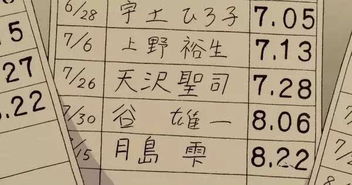 6/28 宇土 ひろ子 7.05
7/6 上野 裕生 7.13
7/26 天沢 聖司 7.28
7/30 谷 雄一 8.06
/15 月島 雫 8.22
5
27
.22